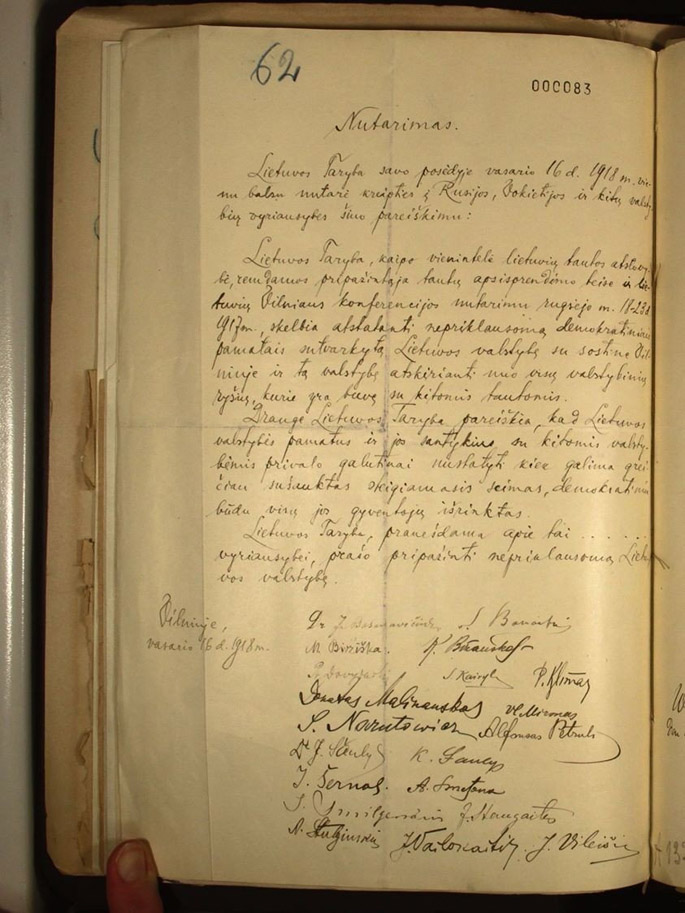 62
000083
Nutarimas.
Lietuvos Taryba savo posėdyje vasario 16 d. 1918 m. vie-
nu balsu nutarė kreiptis į Rusijos, Vokietijos ir kitų valsty-
bių vyriausybes šiuo pareiškimu:
Lietuvos Taryba, kaipo vienintelė lietuvių tautos atstovy-
bė, remdamos pripažintąja tautų apsisprendimo teise ir lie-
tuvių Vilniaus konferencijos nutarimu rugsėjo m. 18-23 d.
1917 m., skelbia atstatanti nepriklausomą demokratiniais
pamatais sutvarkytą Lietuvos valstybę su sostine Vil-
niuje ir tą valstybę atskirianti nuo visų valstybinių
ryšių, kurie yra buvę su kitomis tautomis.
Drauge Lietuvos Taryba pareiškia, kad Lietuvos
valstybės pamatus ir jos santykius su kitomis valsty-
bėmis privalo galutinai nustatyti kiek galima grei-
čiau sušauktas steigiamasis seimas, demokratiniu
būdu visų jos gyventojų išrinktas.
Lietuvos Taryba, pranešdama apie tai . . . . . .
vyriausybei, prašo pripažinti nepriklausomą Lietu-
vos valstybę.
Vilniuje,
vasario 16 d. 1918 m.
Dr J. Basanavičius S. Banaitis
M Biržiška. K. Bizauskas
P. Dovydaitis S Kairys P. Klimas
Donatas Malinauskas Vl Mironas
S. Narutowicz Alfonsas Petrulis
Dr J. Šaulys K. Šaulys
J. Šernas A. Smetona
J. Smilgevičius J. Staugaitis
A. Stulginskis J. Vailokaitis J. Vileišis